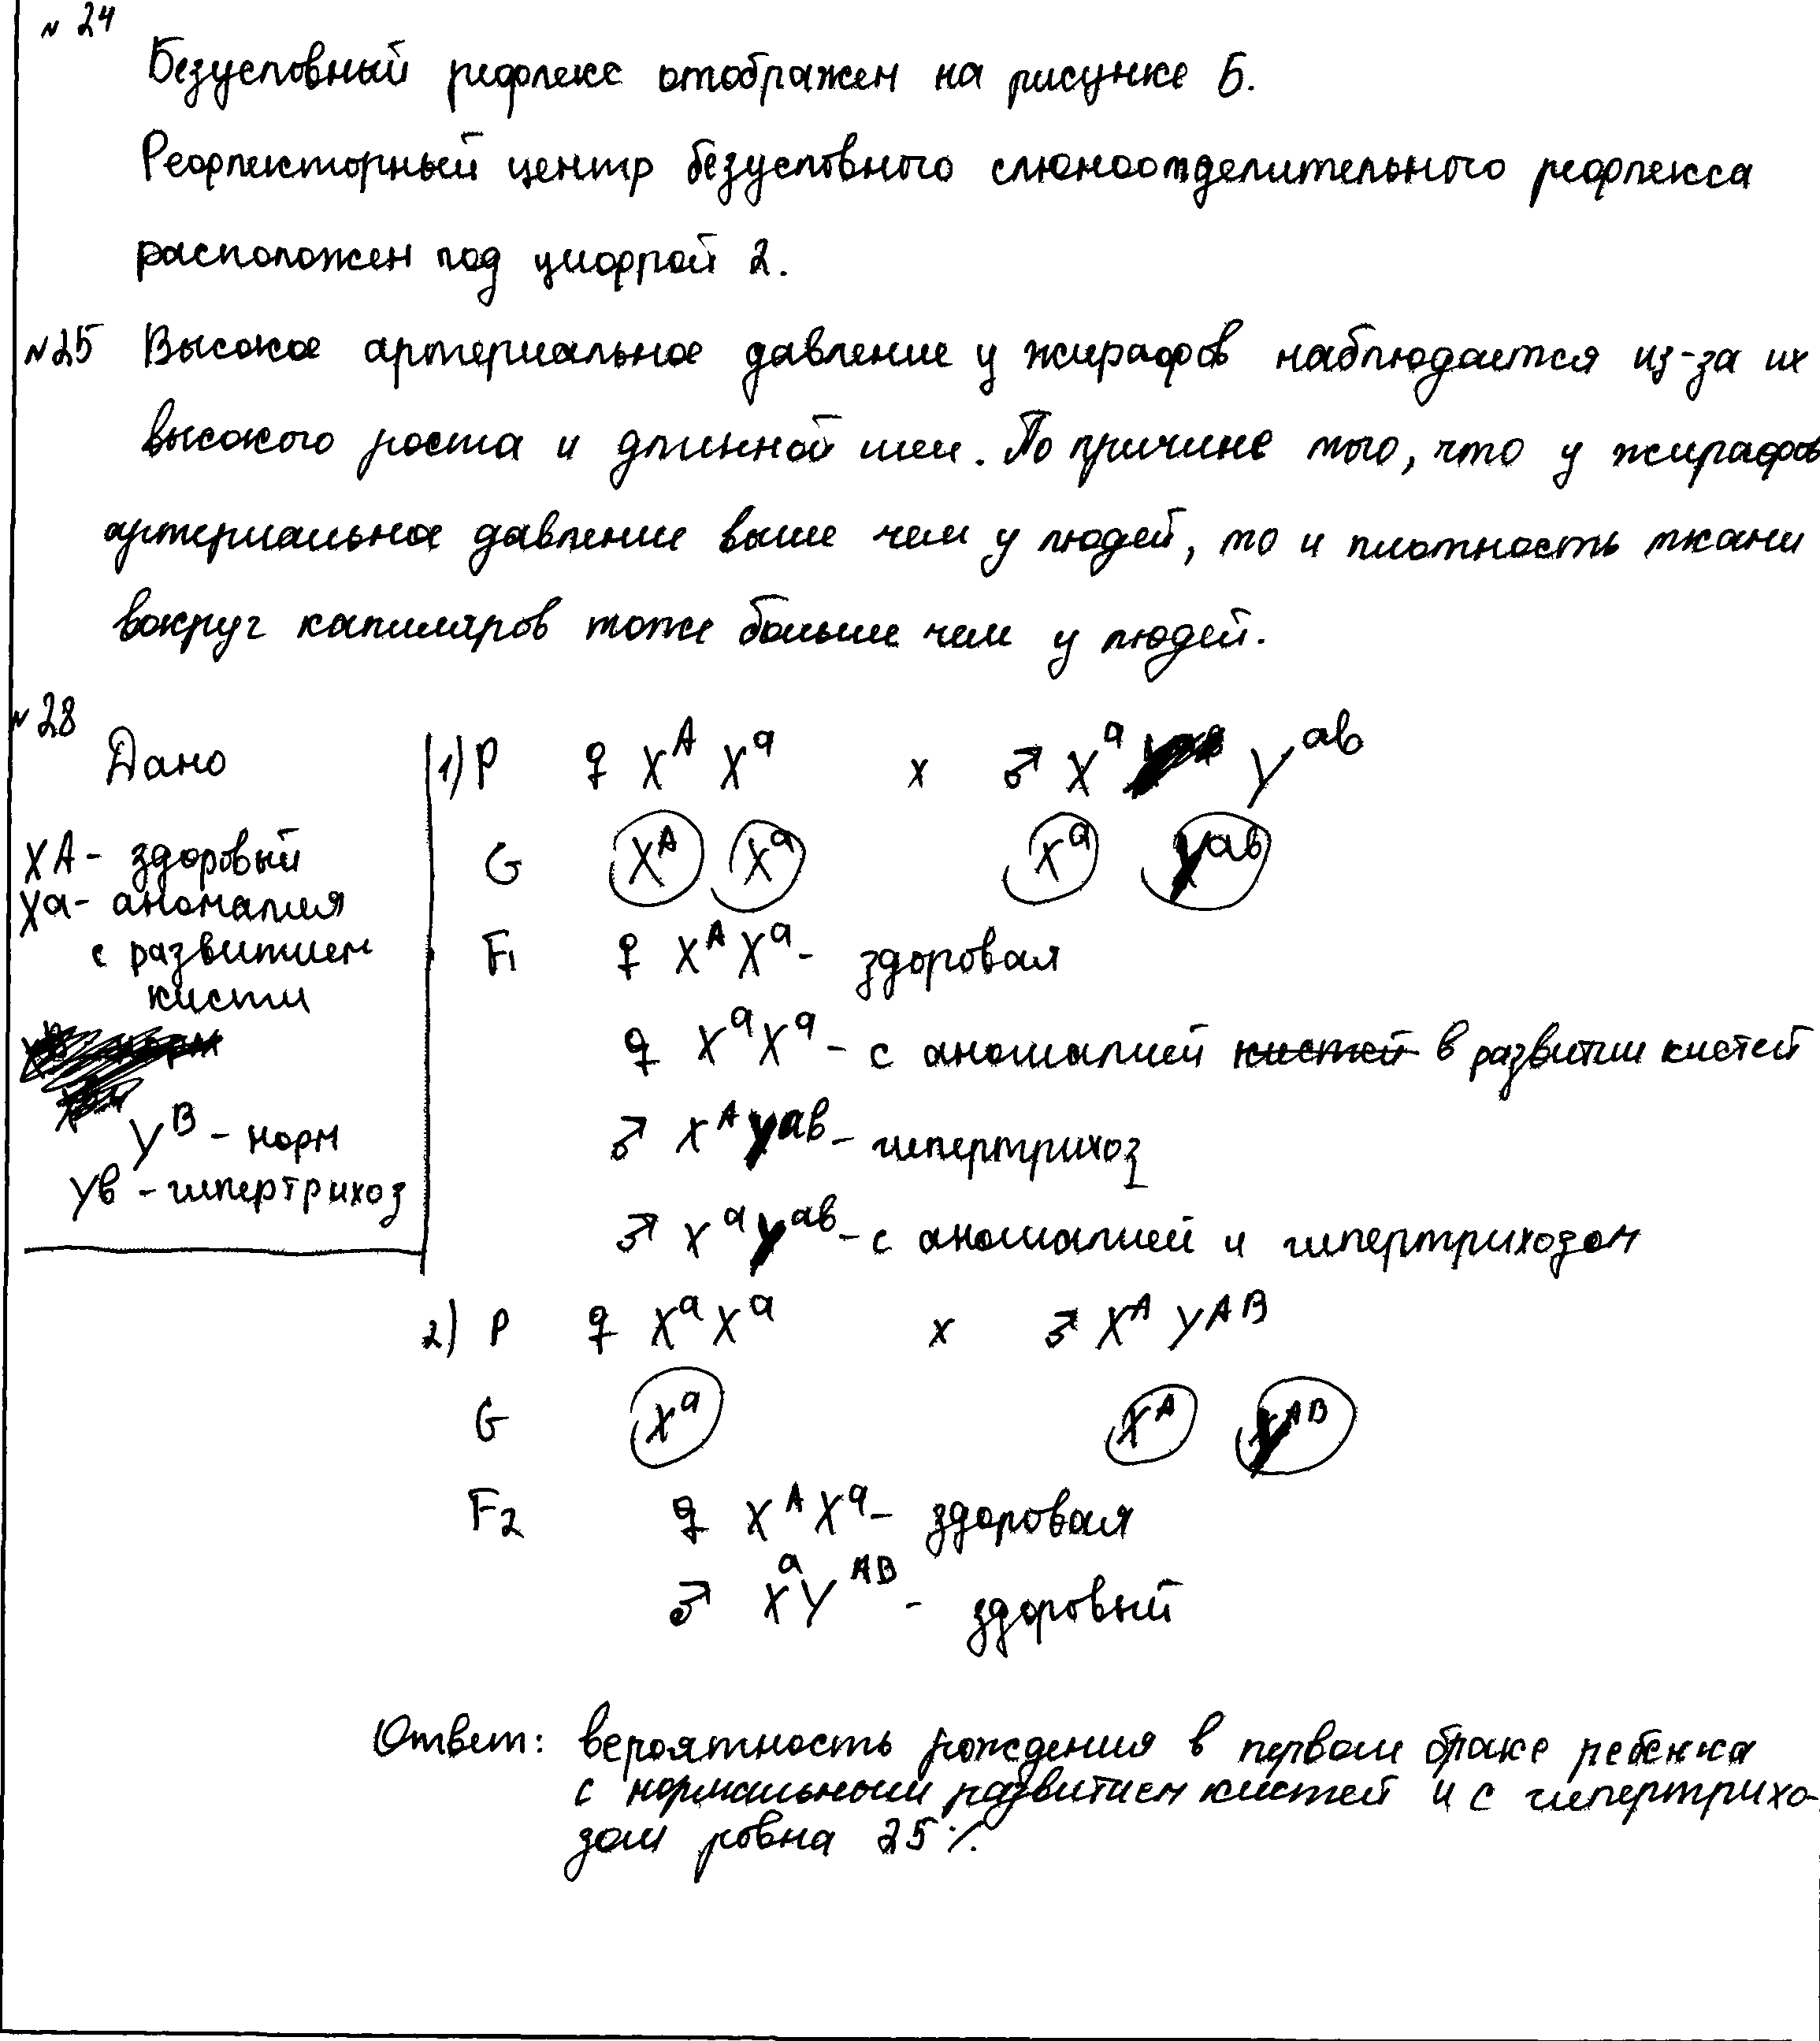 № 24
Безусловный рефлекс отображен на рисунке Б.
Рефлекторный центр безусловного слюноотделительного рефлекса
расположен под цифрой 2.
№25 Высокое артериальное давление у жирафов наблюдается из-за их
высокого роста и длинной шеи. По причине того, что у жирафов
артериальное давление выше чем у людей, то и плотность ткани
вокруг капиляров тоже больше чем у людей.
№28
Дано
XA - здоровый
Xa - аномалия
с развитием
кисти
Y^B - норм
Yв - гипертрихоз
1) P ♀ X^A X^a x ♂ X^a Y^ав
G X^A X^a X^a Y^ав
F1 ♀ X^A X^a - здоровая
♀ X^a X^a - с аномалией кистей в развитии кистей
♂ X^A Y^ав - гипертрихоз
♂ X^a Y^ав - с аномалией и гипертриходом
2) P ♀ X^a X^a x ♂ X^A Y^AB
G X^a X^A Y^AB
F2 ♀ X^A X^a - здоровая
♂ X^a Y^AB - здоровый
Ответ: вероятность рождения в первом браке ребенка
с нормальным развитием кистей и с гипертрихо-
зом ровна 25%.